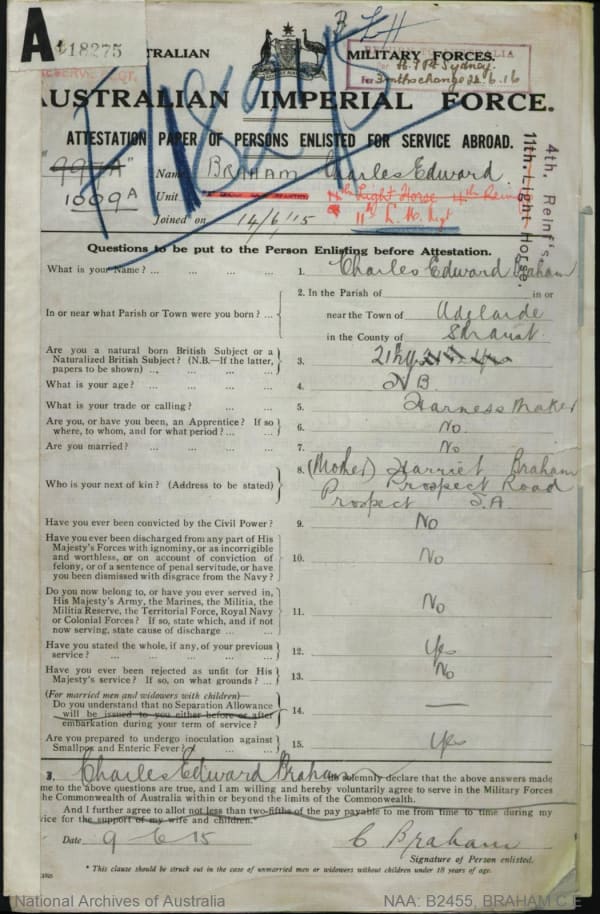 A 18275
B L H
AUSTRALIAN MILITARY FORCES.
H.T.Pt Sydney.
For 3mthsch 22.6.16
AUSTRALIAN IMPERIAL FORCE.
ATTESTATION PAPER OF PERSONS ENLISTED FOR SERVICE ABROAD.
"997A" Name BRAHAM Charles Edward.
1009A Unit Light Horse 4th Rein
11th L. H. Rgt
Joined on 14/6/15
4th. Reinf's.
11th. Light Horse.
Questions to be put to the Person Enlisting before Attestation.
What is your Name? ... 1. Charles Edward Braham
In or near what Parish or Town were you born? ... 2. In the Parish of in or
near the Town of Adelaide
in the County of
Are you a natural born British Subject or a
Naturalized British Subject? (N.B.—If the latter,
papers to be shown) ... 3.
What is your age? ... 4. N B.
What is your trade or calling? ... 5. Harness Maker
Are you, or have you been, an Apprentice? If so
where, to whom, and for what period? ... 6. No.
Are you married? ... 7. No
Who is your next of kin? (Address to be stated) 8. (Mother) Harriet Braham
Prospect Road
Prospect S.A.
Have you ever been convicted by the Civil Power? 9. No
Have you ever been discharged from any part of His
Majesty's Forces with ignominy, or as incorrigible
and worthless, or on account of conviction of
felony, or of a sentence of penal servitude, or have
you been dismissed with disgrace from the Navy? 10. No
Do you now belong to, or have you ever served in,
His Majesty's Army, the Marines, the Militia, the
Militia Reserve, the Territorial Force, Royal Navy
or Colonial Forces? If so, state which, and if not
now serving, state cause of discharge ... 11. No
Have you stated the whole, if any, of your previous
service? ... 12. Yes
Have you ever been rejected as unfit for His
Majesty's service? If so, on what grounds? 13. No
(For married men and widowers with children)—
Do you understand that no Separation Allowance
will be issued to you either before or after
embarkation during your term of service? 14. —
Are you prepared to undergo inoculation against
Smallpox and Enteric Fever? ... 15. Yes
Charles Edward Braham solemnly declare that the above answers made
me to the above questions are true, and I am willing and hereby voluntarily agree to serve in the Military Forces
he Commonwealth of Australia within or beyond the limits of the Commonwealth.
And I further agree to allot not less than two-fifths of the pay payable to me from time to time during my
vice for the support of my wife and children.*
Date 9 6 15 C Braham
Signature of Person enlisted.
* This clause should be struck out in the case of unmarried men or widowers without children under 18 years of age.
National Archives of Australia NAA: B2455, BRAHAM C E